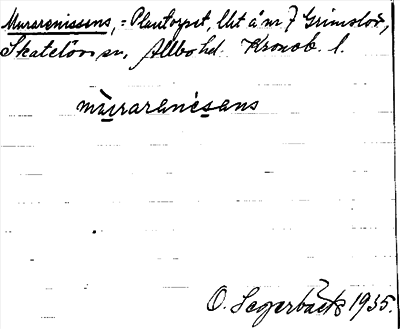 Murarenissens, = Plantorpet, lht å nr 7 Grimslöv,
Skatelövs sn, Allbo hd. Kronob. l.
mùraranisans
O. Segerbäck 1935.